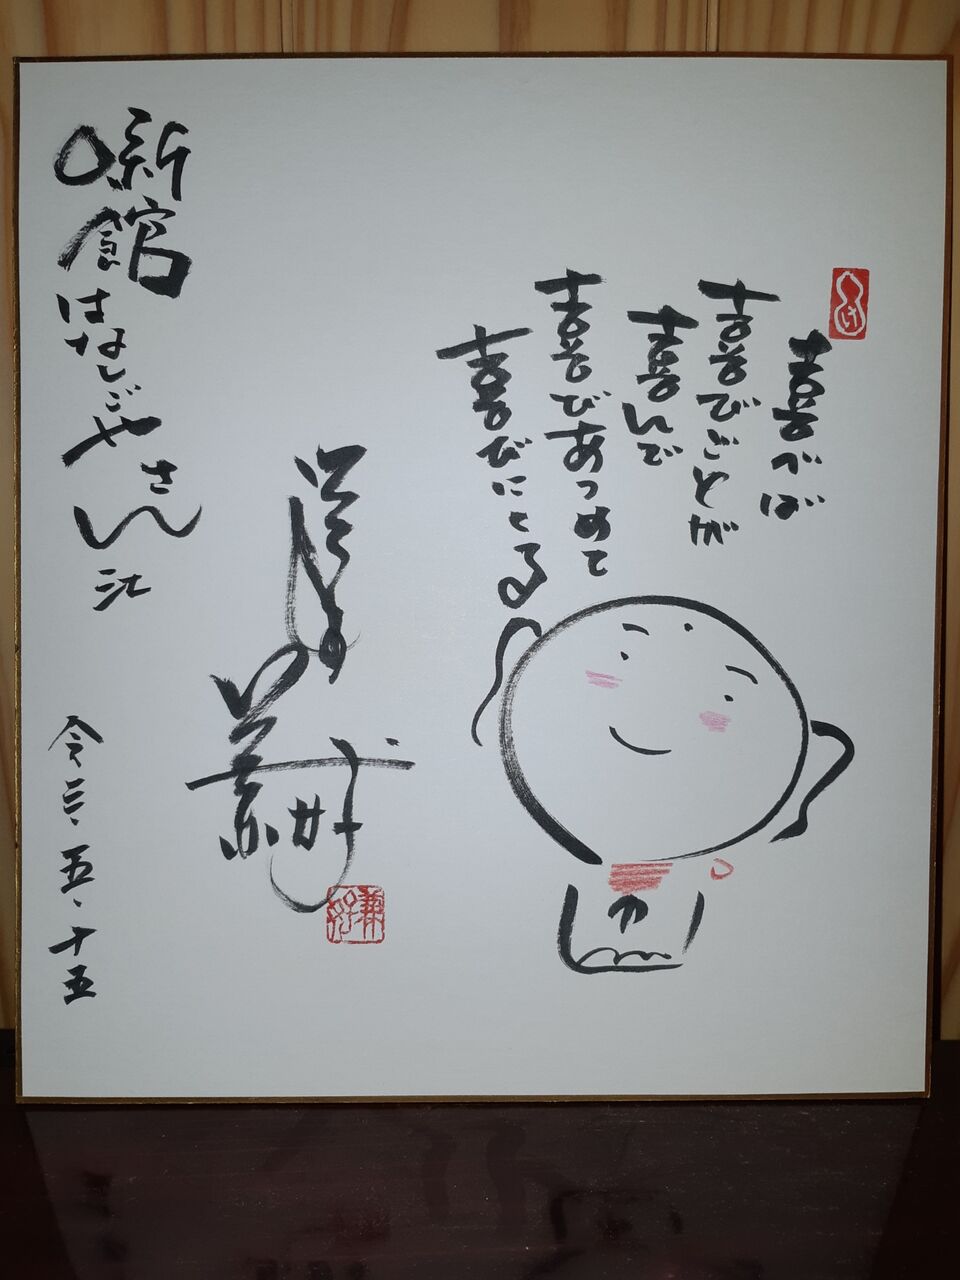 け
喜べば
喜びごとが
喜んで
喜びあつめて
喜びにくる
兼好
噺館はなしごやさん江
令三、五、十五